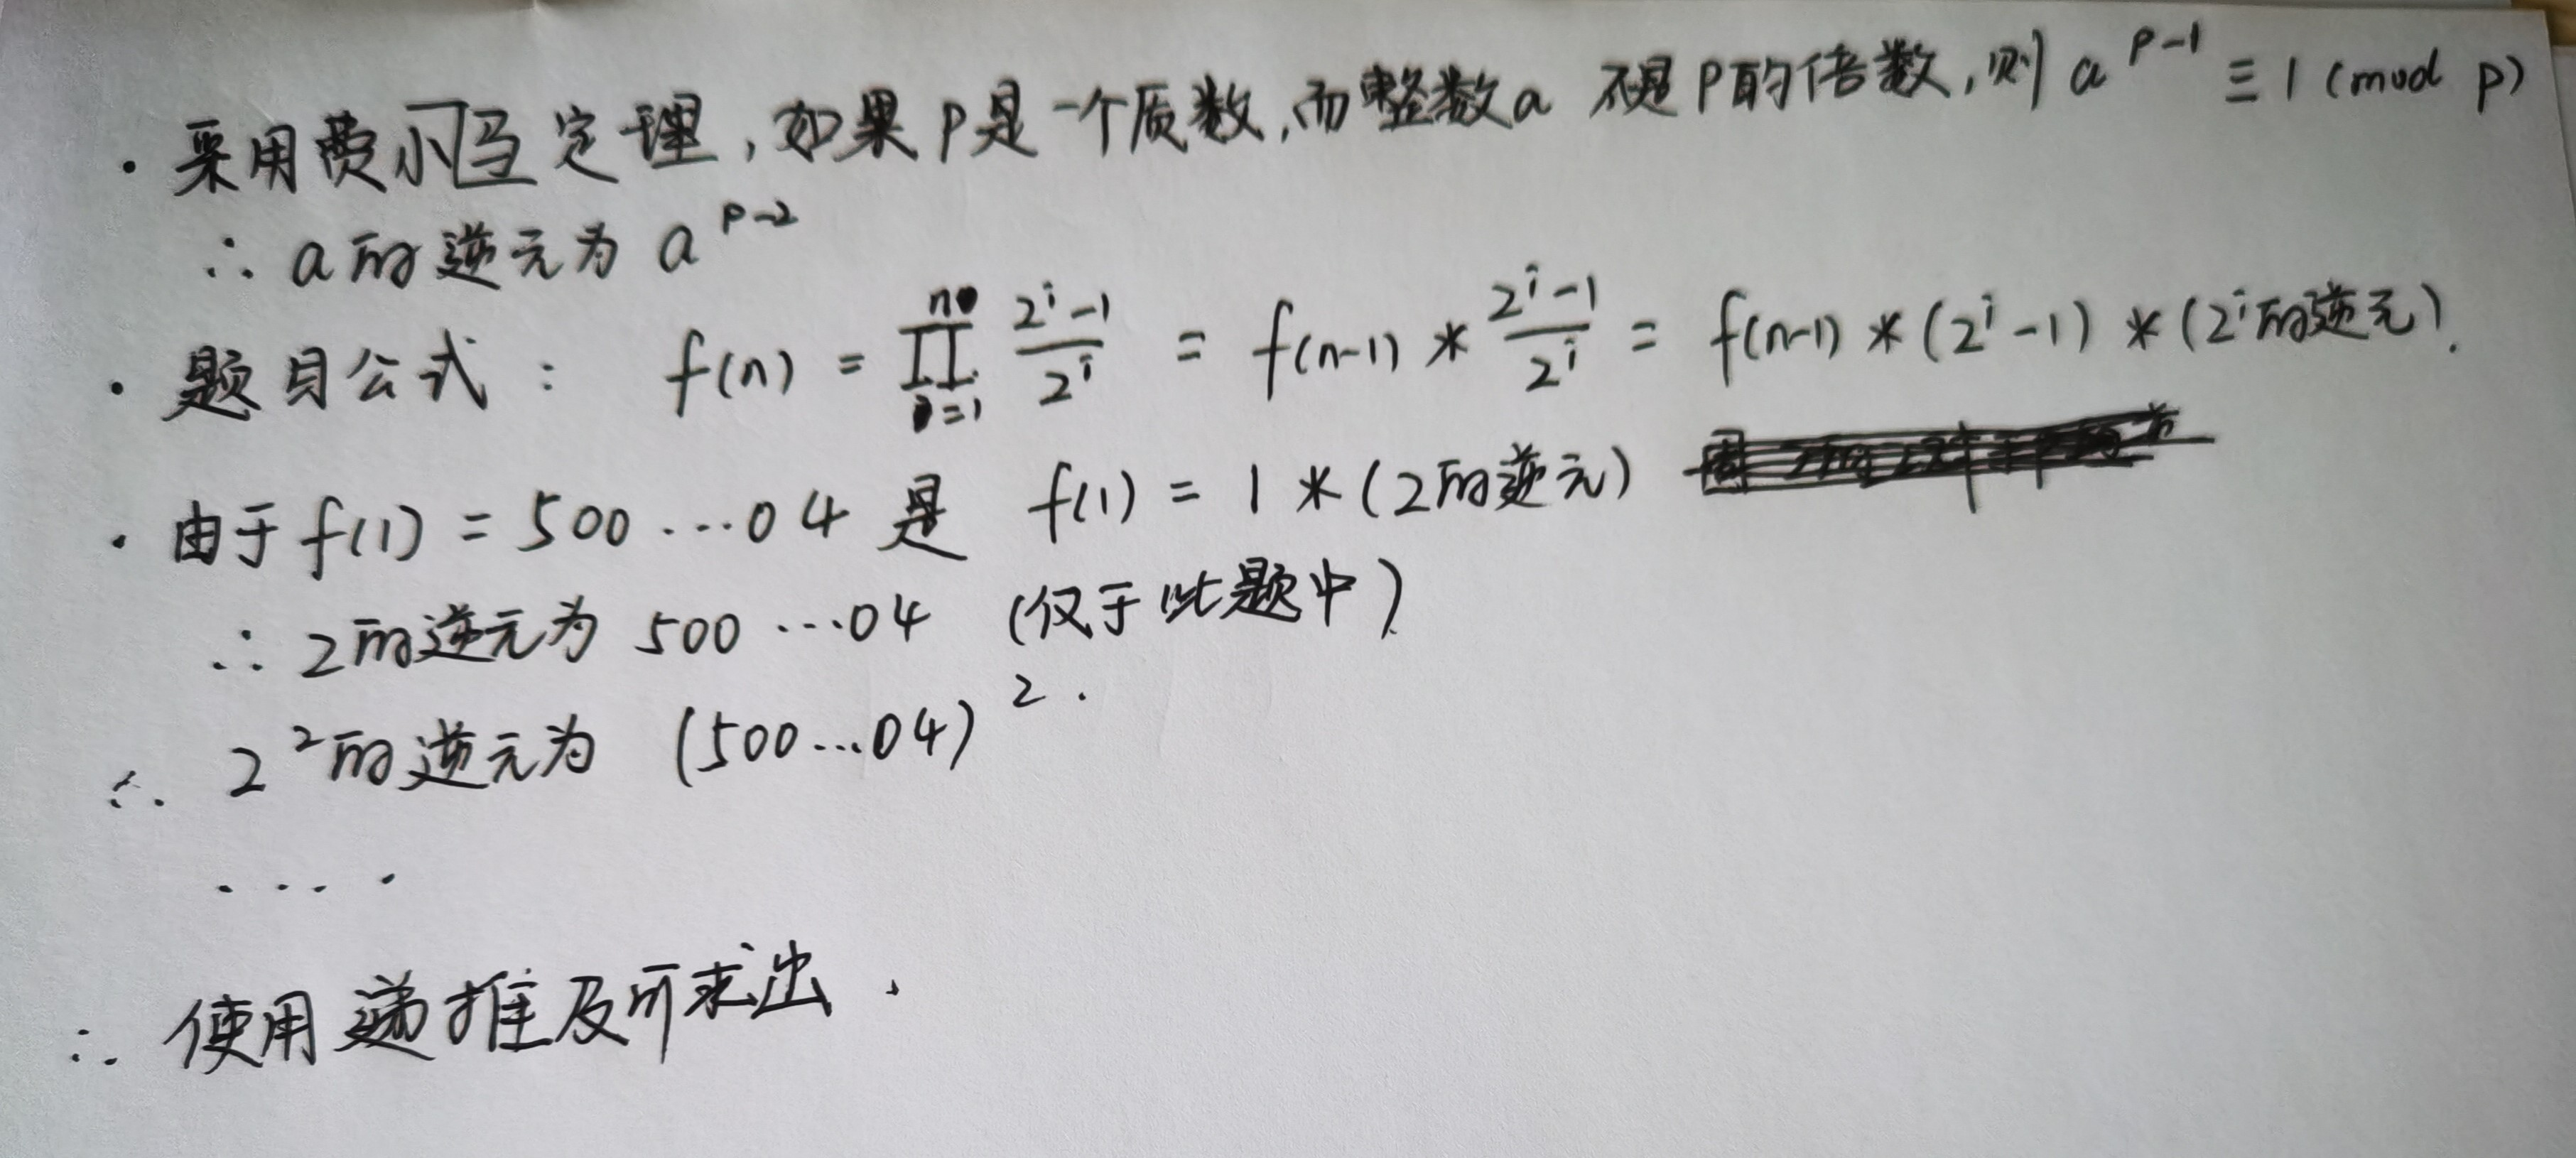 · 采用费小马定理，如果P是一个质数，而整数a 不是P的倍数，则 a^{p-1} ≡ 1 (mod p)
∴ a的逆元为 a^{p-2}
· 题目公式： f(n) = ∏_{i=1}^{n} \frac{2^i-1}{2^i} = f(n-1) * \frac{2^i-1}{2^i} = f(n-1) * (2^i-1) * (2^i的逆元).
· 由于 f(1) = 500...04 是 f(1) = 1 * (2的逆元)
∴ 2的逆元为 500...04 (仅于此题中)
∴ 2^2的逆元为 (500...04)^2.
....
∴ 使用递推及可求出.